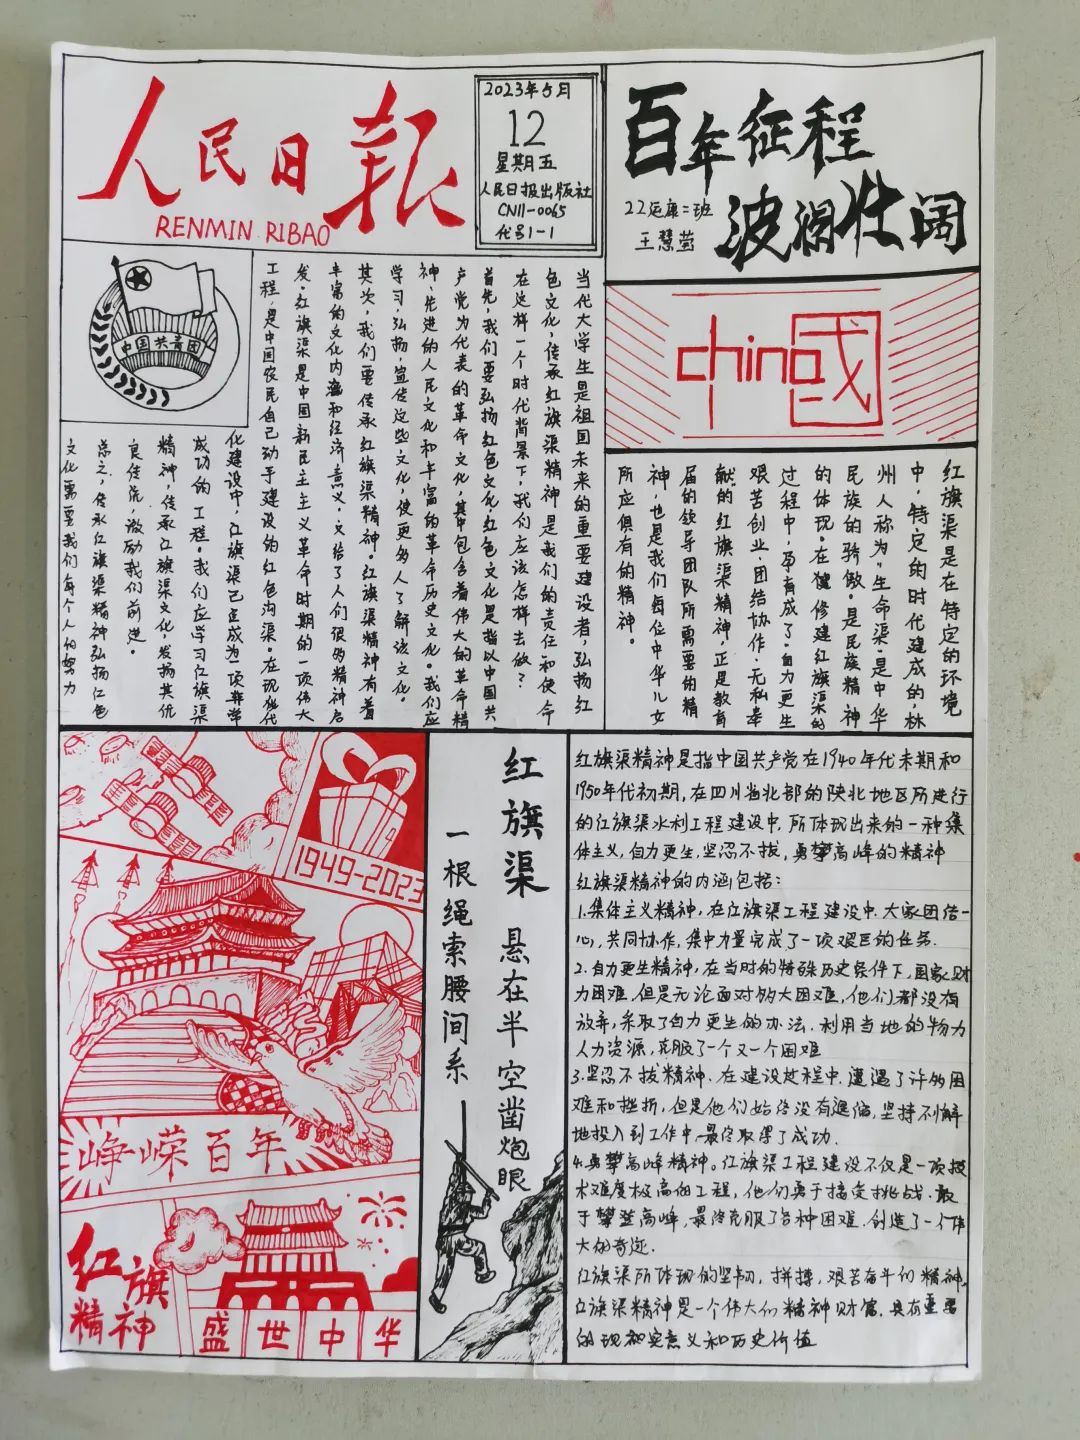 人民日报
RENMIN RIBAO
2023年5月
12
星期五
人民日报出版社
CN11-0065
代号1-1
百年征程
波澜壮阔
22运康二班
王慧茵
中国共青团
china国
当代大学生是祖国未来的重要建设者,弘扬红
色文化,传承红旗渠精神是我们的责任和使命
在这样一个时代背景下,我们应该怎样去做?
首先,我们要弘扬红色文化,红色文化是指以中国共
产党为代表的革命文化,其中包含着伟大的革命精
神、先进的人民文化和丰富的革命历史文化。我们应
学习,弘扬,宣传这些文化,使更多人了解该文化。
其次,我们要传承红旗渠精神。红旗渠精神有着
丰富的文化内涵和经济意义,又给了人们很多精神启
发。红旗渠是中国新民主主义革命时期的一项伟大
工程,是中国农民自己动手建设的红色沟渠。在现代
化建设中,红旗渠已定成为一项非常
成功的工程。我们应学习红旗渠
精神,传承红旗渠文化,发扬其优
良传统,激励我们前进。
总之,传承红旗渠精神弘扬红色
文化需要我们每个人的努力
红旗渠是在特定的环境
中,特定的时代建成的,林
州人称为"生命渠",是中华
民族的骄傲。是民族精神
的体现。在 修建红旗渠的
过程中,孕育成了"自力更生
艰苦创业、团结协作、无私奉
献的红旗渠精神,正是教育
届的领导团队所需要的精
神,也是我们每位中华儿女
所应俱有的精神。
1949-2023
峥嵘百年
红旗
精神
盛世中华
红旗渠 悬在半空凿炮眼
一根绳索腰间系
红旗渠精神是指中国共产党在1940年代末期和
1950年代初期,在四川省北部的陕北地区所进行
的红旗渠水利工程建设中,所体现出来的一种集
体主义,自力更生,坚忍不拔,勇攀高峰的精神
红旗渠精神的内涵包括:
1.集体主义精神,在红旗渠工程建设中,大家团结一
心,共同协作,集中力量完成了一项艰巨的任务.
2.自力更生精神,在当时的特殊历史条件下,国家财
力困难,但是无论面对多大困难,他们都没有
放弃,采取了自力更生的办法.利用当地的物力
人力资源,克服了一个又一个困难
3.坚忍不拔精神.在建设过程中,遭遇了许多困
难和挫折,但是他们始终没有退缩,坚持不懈
地投入到工作中,最终取得了成功.
4.勇攀高峰精神。红旗渠工程建设不仅是一项技
术难度极高的工程,他们勇于接受挑战.敢
于攀登高峰,最终克服了各种困难.创造了一个伟
大的奇迹.
红旗渠所体现的坚韧,拼搏,艰苦奋斗的精神,
红旗渠精神是一个伟大的精神财富.具有重要
的现实意义和历史价值